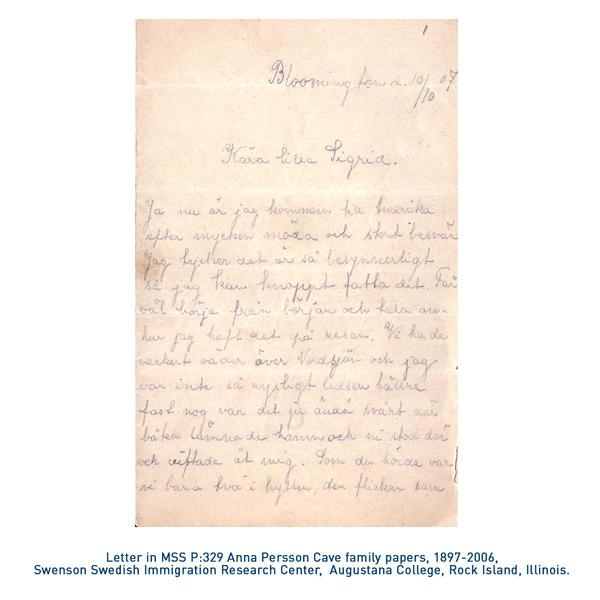 1
Bloomington d. 10/10 07
Kära lilla Sigrid.
Ja nu är jag kommen till Amerika
efter mycken möda och stort besvär
Jag tycker det är så besynnerligt
så jag kan knappt fatta det. Får
väl börja från början och tala om
hur jag haft det på resan. Vi hade
vackert väder över Nordsjön och jag
var inte så rysligt ledsen hällre
fast nog var det ju ändå svårt när
båten lämnade hamn och ni stod där
och viftade åt mig. Som du hörde var
vi bara två i hytten, den flickan som
Letter in MSS P:329 Anna Persson Cave family papers, 1897-2006,
Swenson Swedish Immigration Research Center, Augustana College, Rock Island, Illinois.